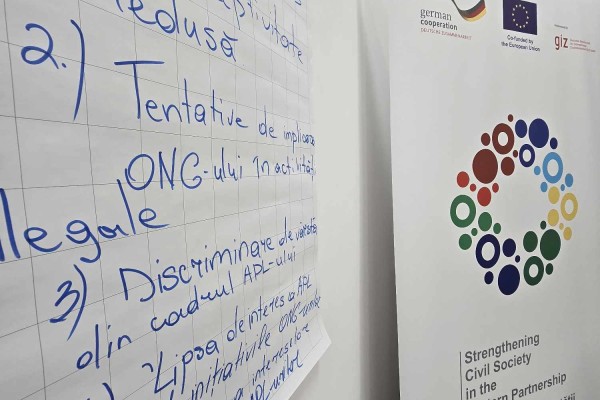 redusă
2.) Tentative de implicare
ONG-ului în activități
ilegale
3) Discriminare de vârstă
din cadrul APL-ului
Lipsa de interes a APL
inițiativile ONG-urilor
a intereselor
german
cooperation
DEUTSCHE ZUSAMMENARBEIT
Co-funded by
the European Union
giz
Strengthening
Civil Society
in the
Partnership